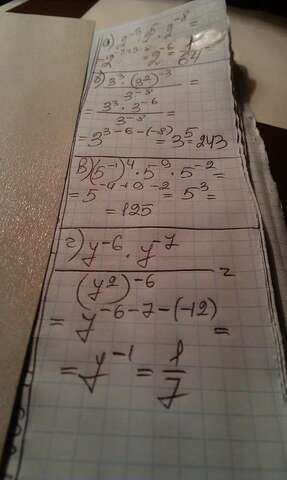 а)
= 2⁻⁶ = 1/64
б) 3³ · (3²)⁻³ / 3⁻⁸ =
= 3³ · 3⁻⁶ / 3⁻⁸ =
= 3³⁻⁶⁻⁽⁻⁸⁾ = 3⁵ = 243
в) (5⁻¹)⁴ · 5⁹ · 5⁻² =
= 5⁻⁴⁺⁹⁻² = 5³ =
= 125
г) y⁻⁶ · y⁻⁷ / (y²)⁻⁶ =
= y⁻⁶⁻⁷⁻⁽⁻¹²⁾ =
= y⁻¹ = 1/7